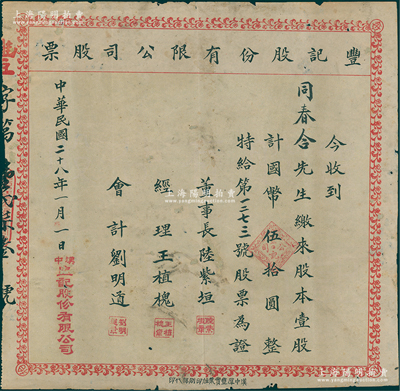 豐記股份有限公司股票
今收到
同春合先生繳來股本壹股
計國幣伍拾圓整
特給第一三七三號股票為證
董事長陸紫垣
經理王植槐
會計劉明道
中華民國二十八年一月一日
豐記股份有限公司
字第
號
上海陽明拍賣